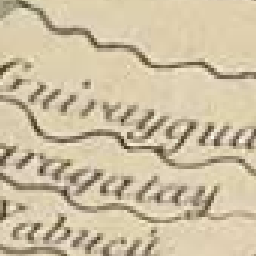 Guirayqua
aragatay
Yabucú